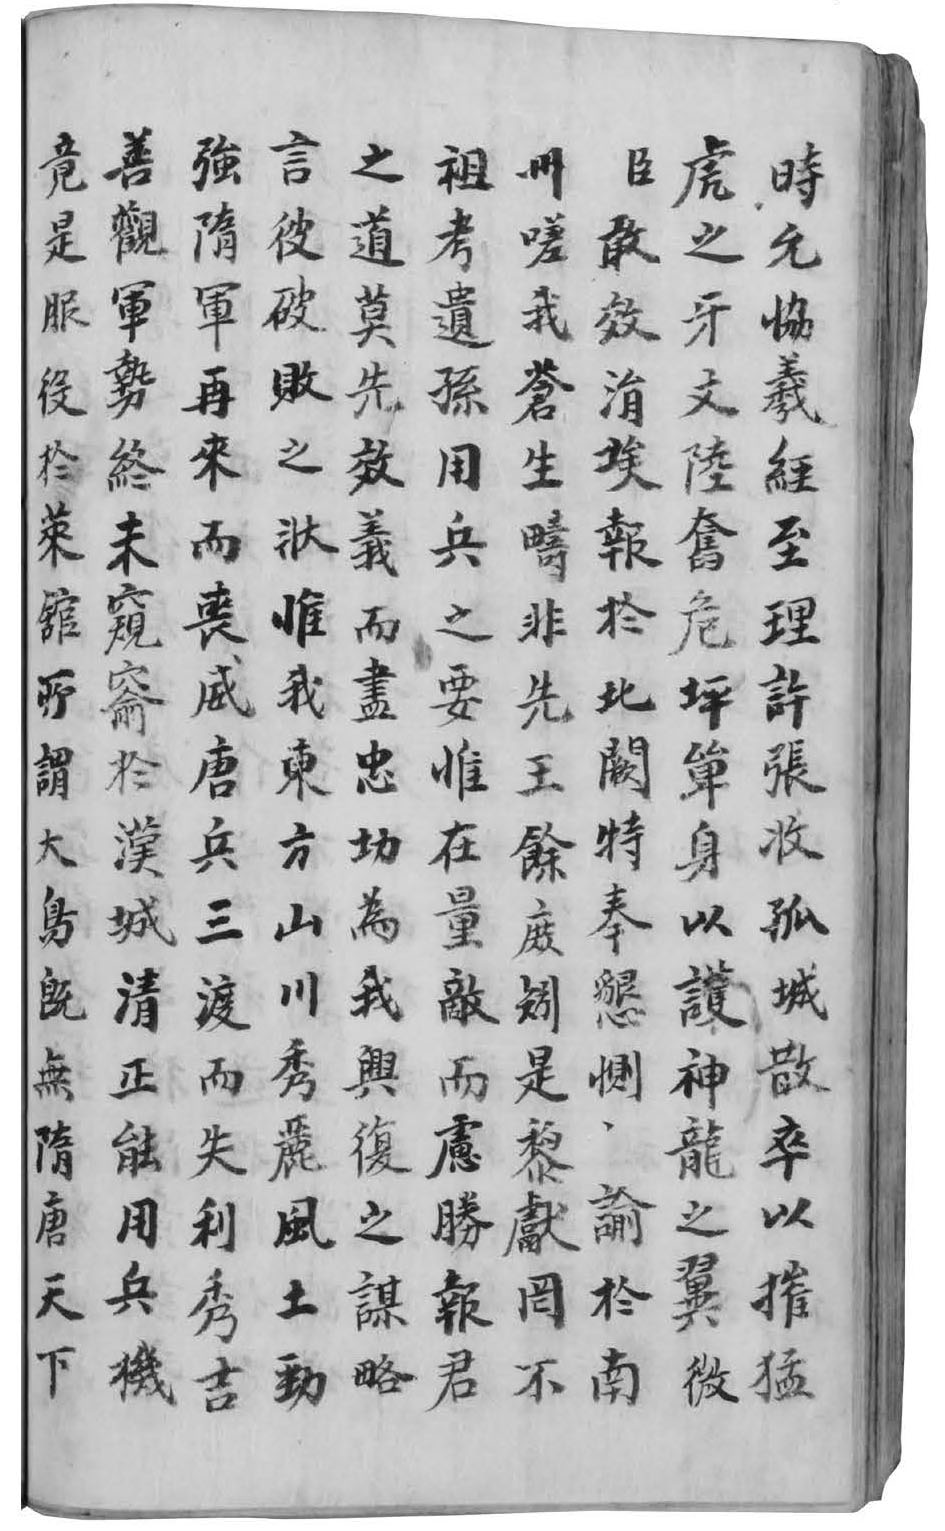 時允恊羲經至理許張收孤城散卒以摧猛
虎之牙文陸奮危坪單身以護神龍之翼微
臣敢效涓埃報於北闕特奉懇惻諭於南
州嗟我蒼生疇非先王餘庶矧是黎獻罔不
祖考遺孫用兵之要惟在量敵而慮勝報君
之道莫先效義而盡忠功為我興復之謀略
言彼破敗之狀惟我東方山川秀麗風土勁
強隋軍再來而喪威唐兵三渡而失利秀吉
善觀軍勢終未窺窬於漢城清正能用兵機
竟是服役於萊舘所謂大島旣無隋唐天下